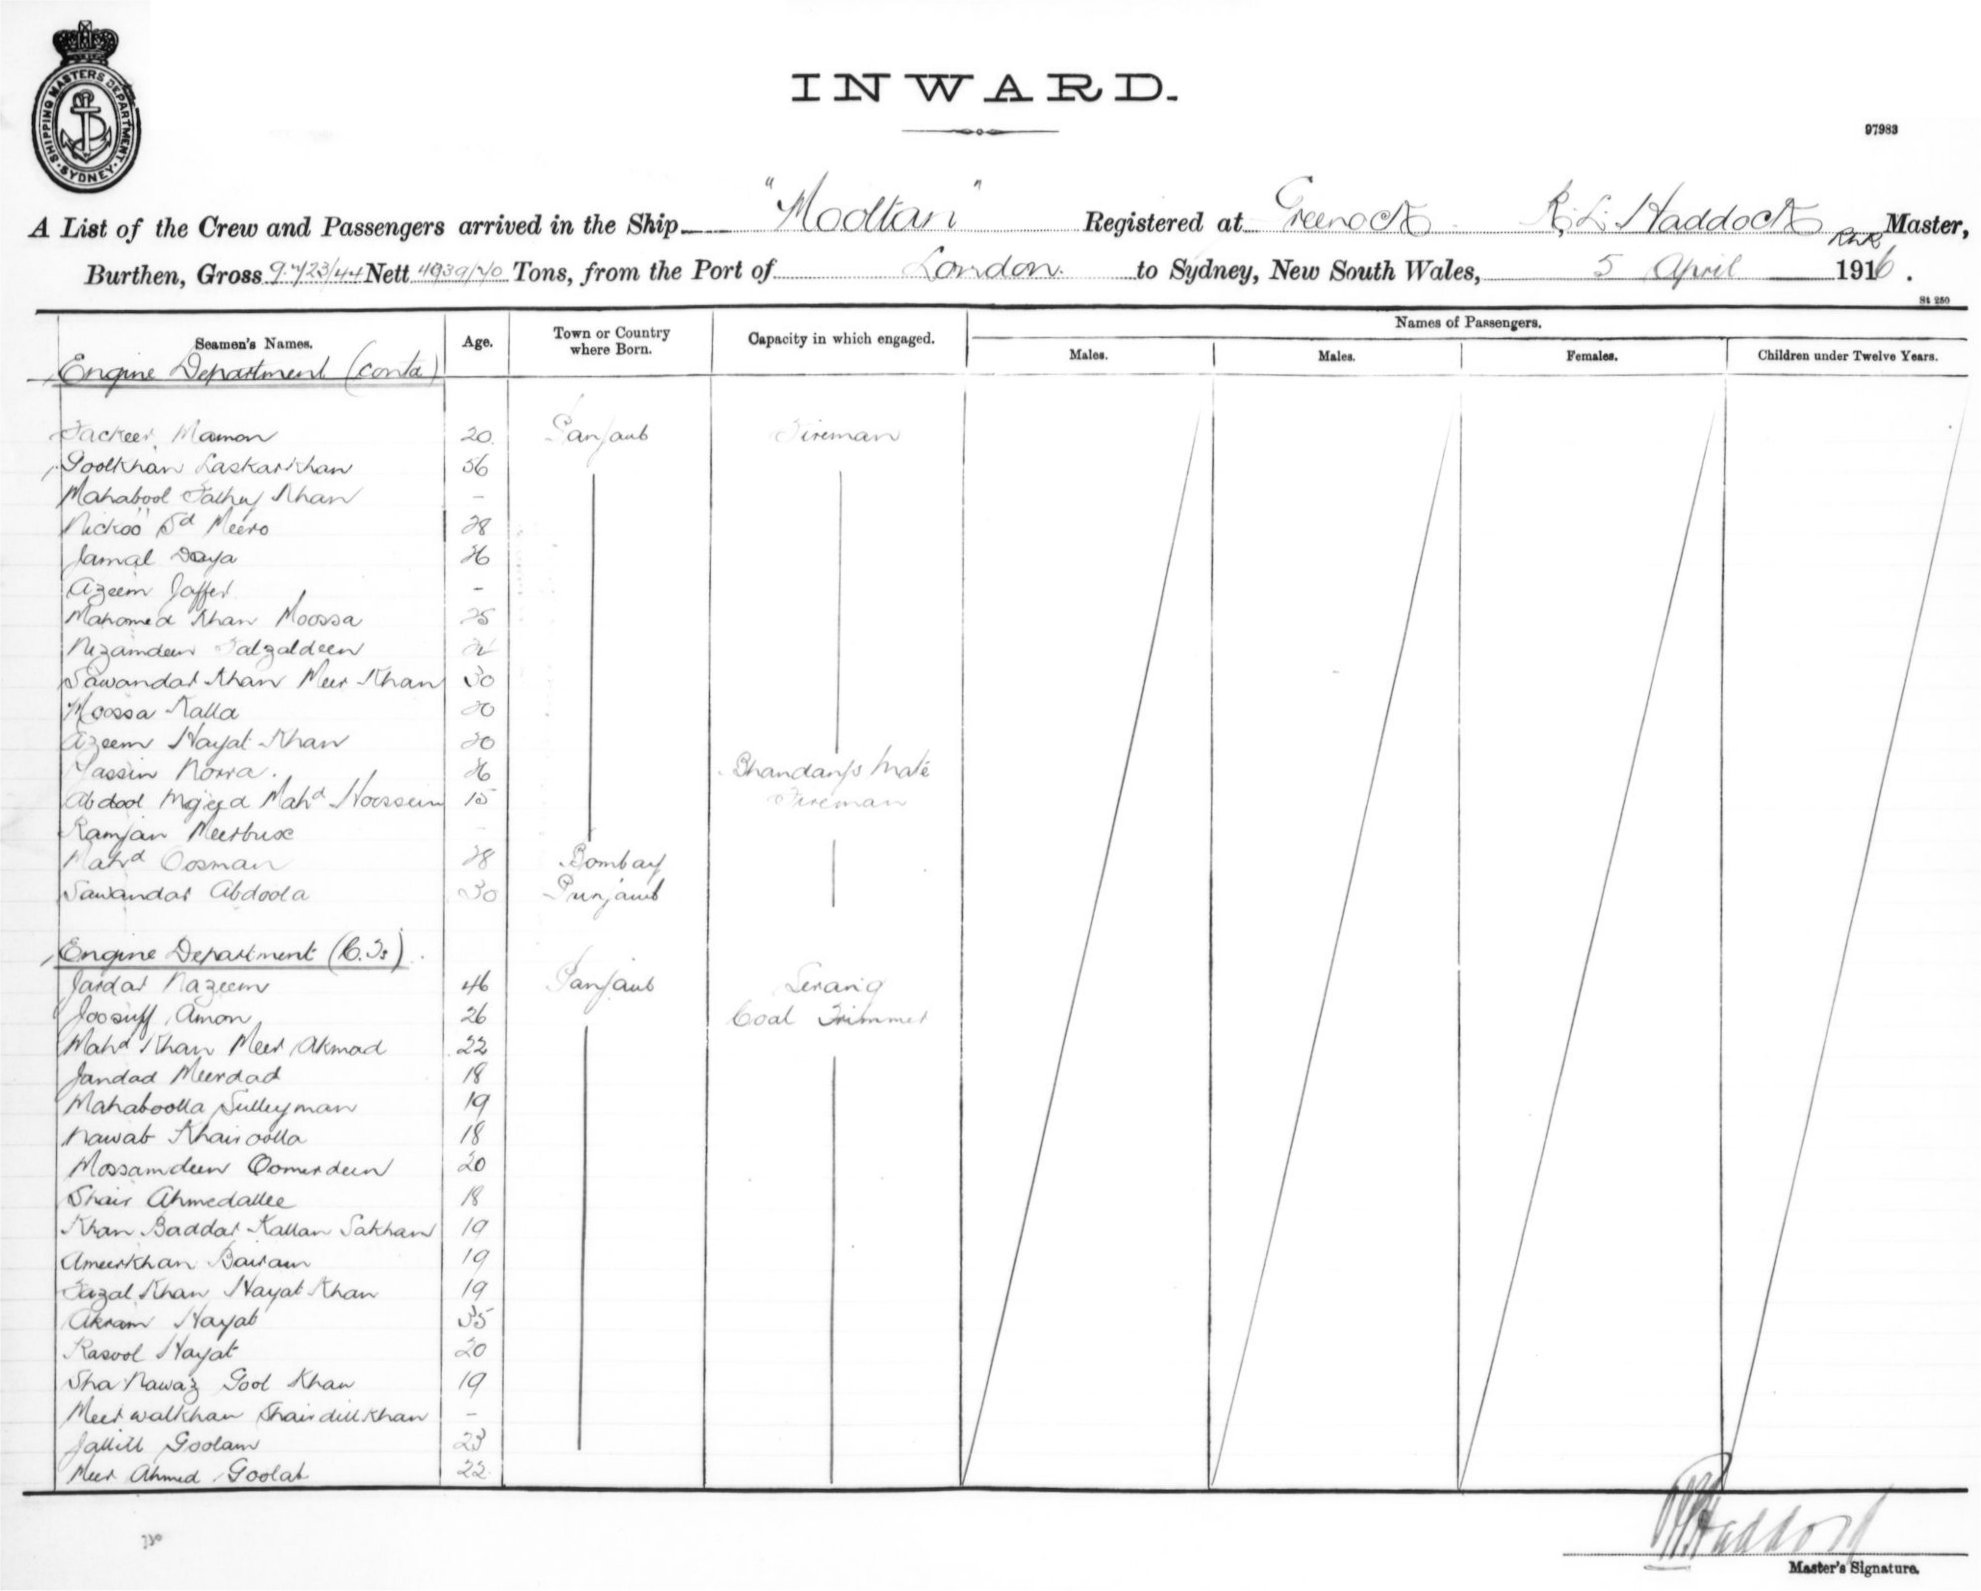 SHIPPING MASTERS DEPARTMENT
SYDNEY
INWARD.
97983
A List of the Crew and Passengers arrived in the Ship "Mooltan" Registered at Greenock R. L. Haddock Master,
Burthen, Gross 9723/44 Nett Tons, from the Port of London. to Sydney, New South Wales, 5 April 1916.
St 250
Seamen's Names. Age. Town or Country where Born. Capacity in which engaged. Names of Passengers.
Males. Males. Females. Children under Twelve Years.
Engine Department (contd)
Fackeer Mamon 20 Panjaub Fireman
Goolkhan Laskarkhan 56
Mahabool Fathey Khan -
Nickoo Sd Meero 28
Jamal Daya 26
Azeem Jaffer -
Mahomed Khan Moossa 25
Nizamdeen Falzaldeen
Sawandar Khan Meer Khan 30
Moossa Kalla 20
Azeem Hayat Khan 20
Yassin Norra. 26 Bhandary's Mate
Abdool Mejeed Mahd Hoossein 15 Fireman
Ramjan Meerbux -
Mahd Oosman 28 Bombay
Sawandar Abdoola 30 Punjaub
Engine Department (C.Ts).
Jardar Nazeem 46 Panjaub Serang
Joosuff Amon 26 Coal Trimmer
Mahd Khan Meer Akmad 22
Jandad Meerdad 18
Mahaboolla Sulleyman 19
Nawab Khairoolla 18
Mossamdeen Oomerdeen 20
Shair Ahmedallee 18
Khan Baddar Kallan Sakhan 19
Ameerkhan Bairam 19
Fazal Khan Hayat Khan 19
Akram Hayat 35
Rasool Hayat 20
Sha Nawaz Gool Khan 19
Meerwalkhan Shairdillkhan -
Jallill Goolam 23
Meer Ahmed Goolab 22
R L Haddock
Master's Signature.